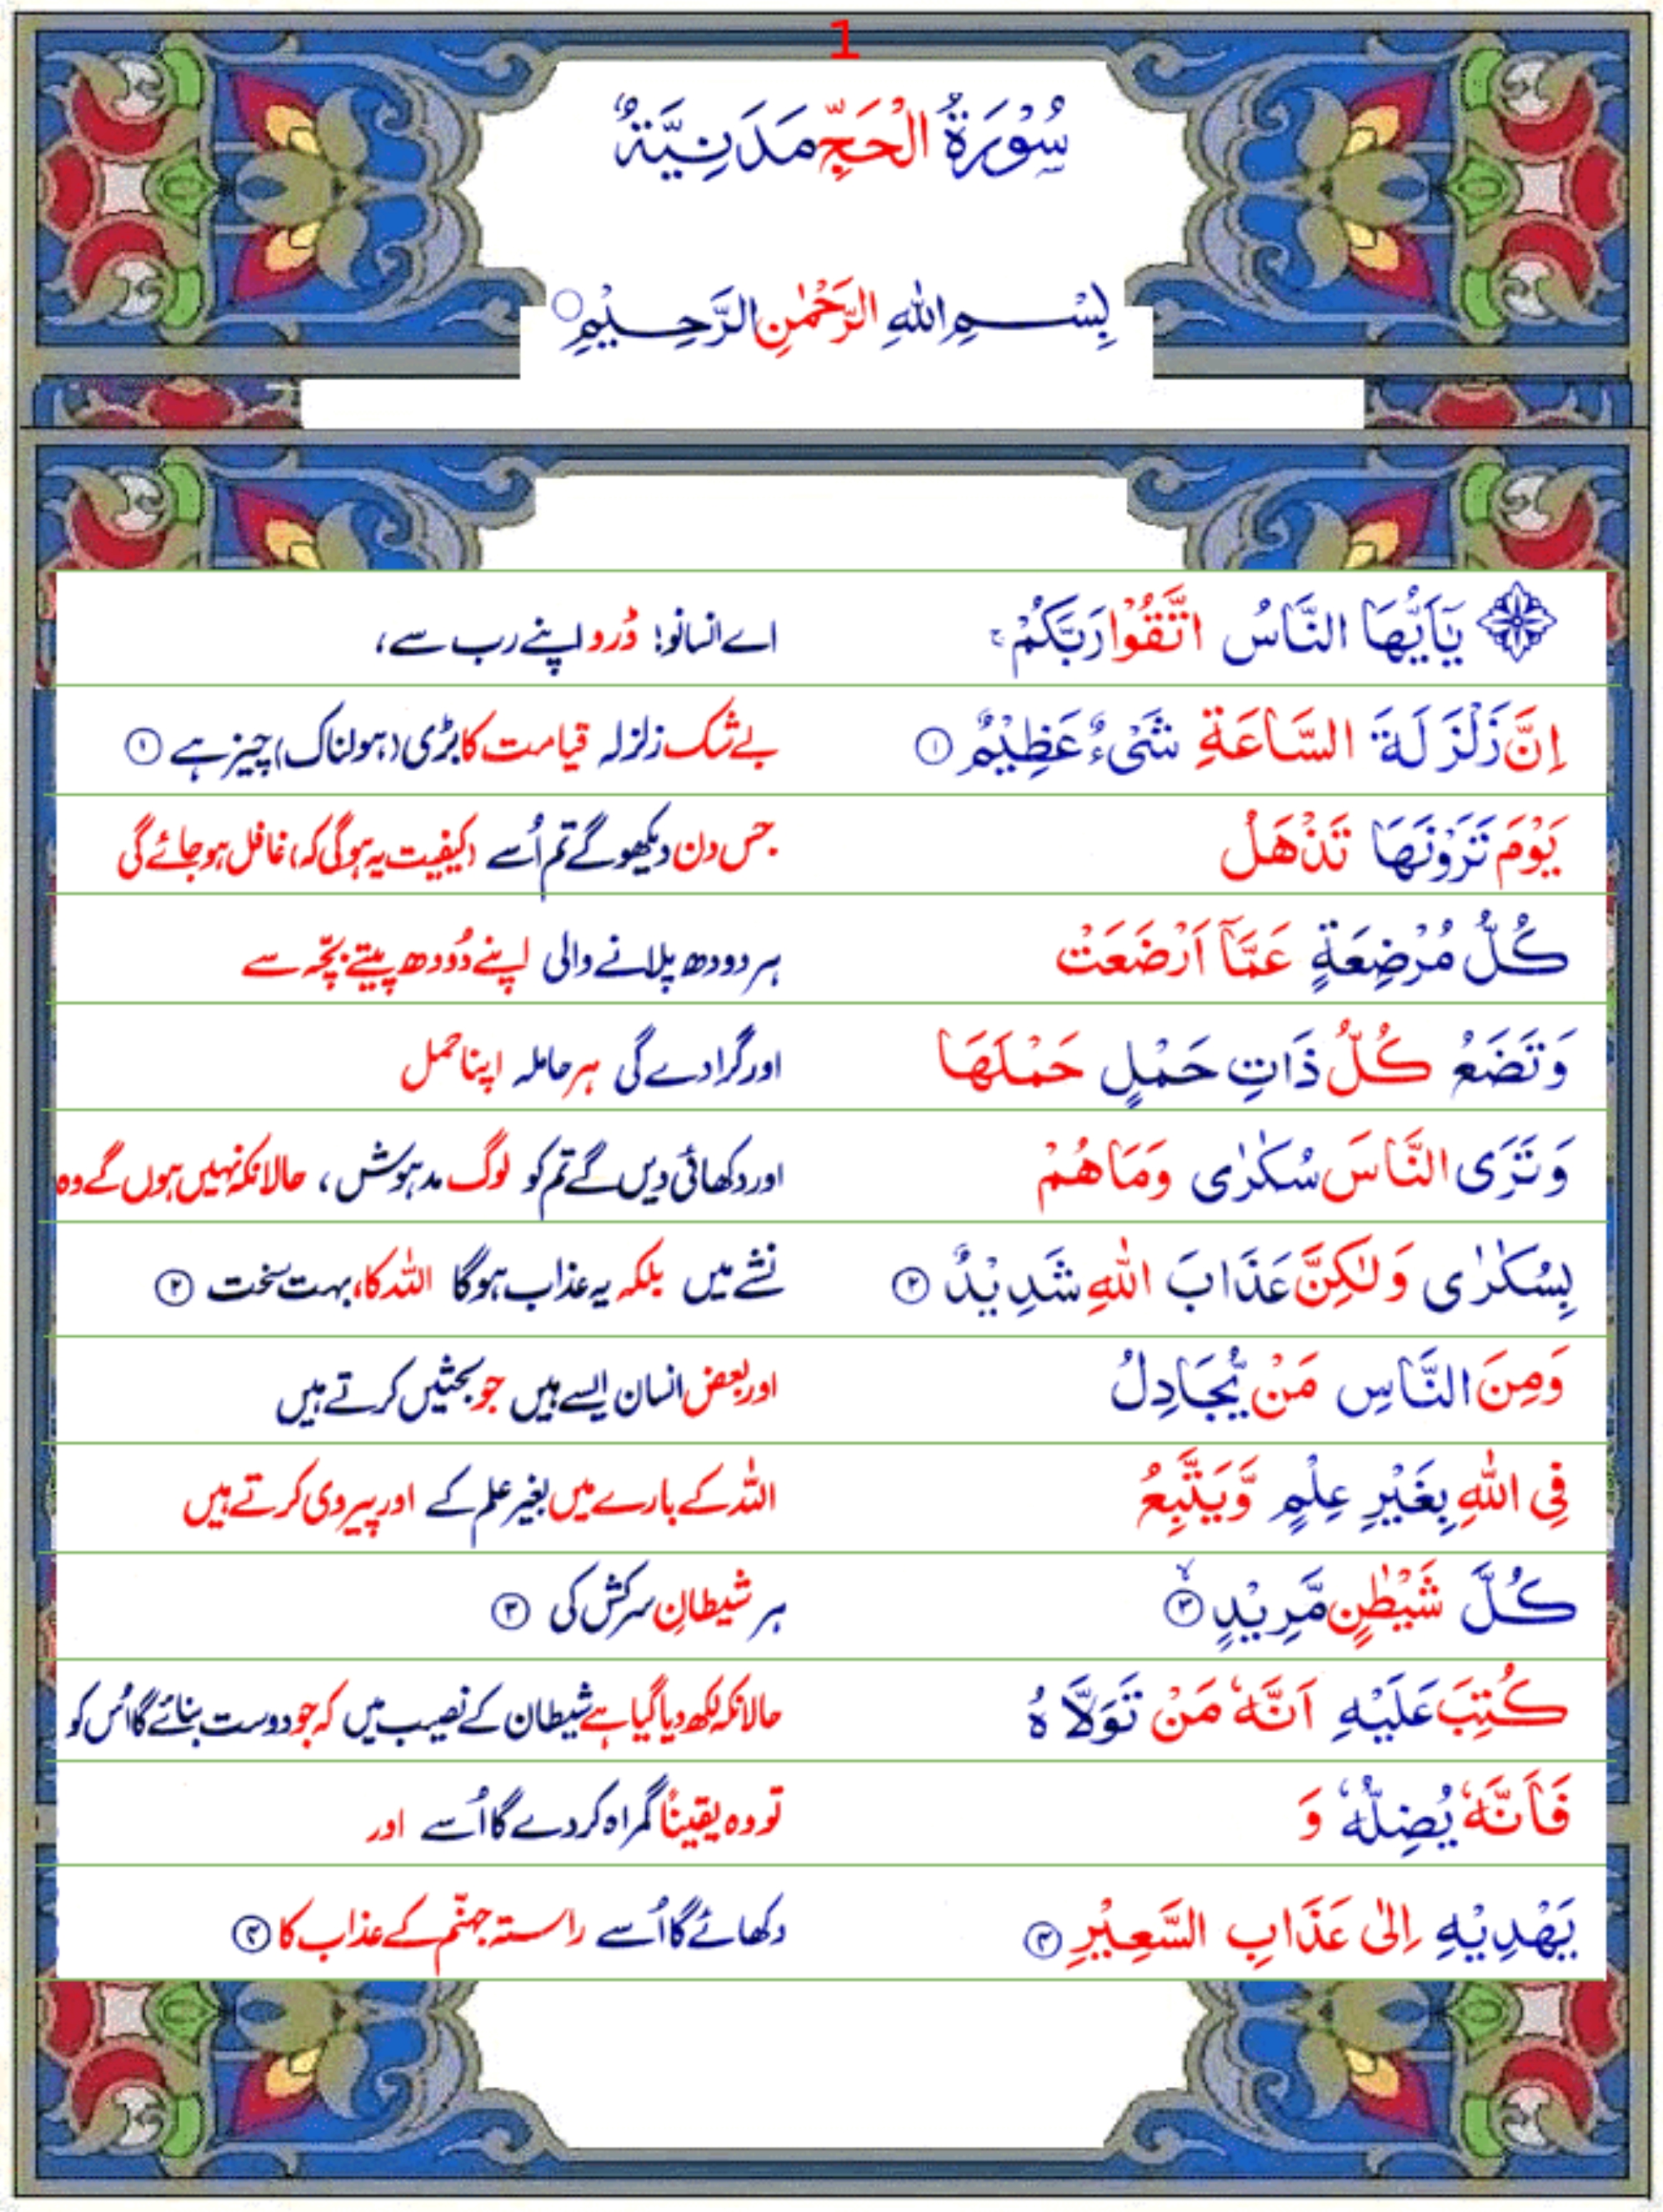 1
سُوْرَةُ الْحَجِّ مَدَنِيَّةٌ
بِسْمِ اللّٰهِ الرَّحْمٰنِ الرَّحِيْمِ
يَاَيُّهَا النَّاسُ اتَّقُوْا رَبَّكُمْ ۚ اے انسانو! ڈرو اپنے رب سے،
اِنَّ زَلْزَلَةَ السَّاعَةِ شَیْءٌ عَظِيْمٌ ۱ بےشک زلزلہ قیامت کا بڑی (ہولناک) چیز ہے ۱
يَوْمَ تَرَوْنَهَا تَذْهَلُ جس دن دیکھو گے تم اُسے (کیفیت یہ ہوگی کہ) غافل ہوجائے گی
كُلُّ مُرْضِعَةٍ عَمَّاۤ اَرْضَعَتْ ہر دودھ پلانے والی اپنے دُودھ پیتے بچّہ سے
وَتَضَعُ كُلُّ ذَاتِ حَمْلٍ حَمْلَهَا اور گرا دے گی ہر حاملہ اپنا حمل
وَتَرَى النَّاسَ سُكٰرٰى وَمَا هُمْ اور دکھائی دیں گے تم کو لوگ مدہوش، حالانکہ نہیں ہوں گے وہ
بِسُكٰرٰى وَلٰكِنَّ عَذَابَ اللّٰهِ شَدِيْدٌ ۲ نشے میں بلکہ یہ عذاب ہوگا اللہ کا، بہت سخت ۲
وَمِنَ النَّاسِ مَنْ يُّجَادِلُ اور بعض انسان ایسے ہیں جو بحثیں کرتے ہیں
فِي اللّٰهِ بِغَيْرِ عِلْمٍ وَّيَتَّبِعُ اللہ کے بارے میں بغیر علم کے اور پیروی کرتے ہیں
كُلَّ شَيْطٰنٍ مَّرِيْدٍ ۳ ہر شیطانِ سرکش کی ۳
كُتِبَ عَلَيْهِ اَنَّهٗ مَنْ تَوَلَّاهُ حالانکہ لکھ دیا گیا ہے شیطان کے نصیب میں کہ جو دوست بنائے گا اُس کو
فَاَنَّهٗ يُضِلُّهٗ وَ تو وہ یقیناً گمراہ کردے گا اُسے اور
يَهْدِيْهِ اِلٰى عَذَابِ السَّعِيْرِ ۴ دکھائے گا اُسے راستہ جہنّم کے عذاب کا ۴